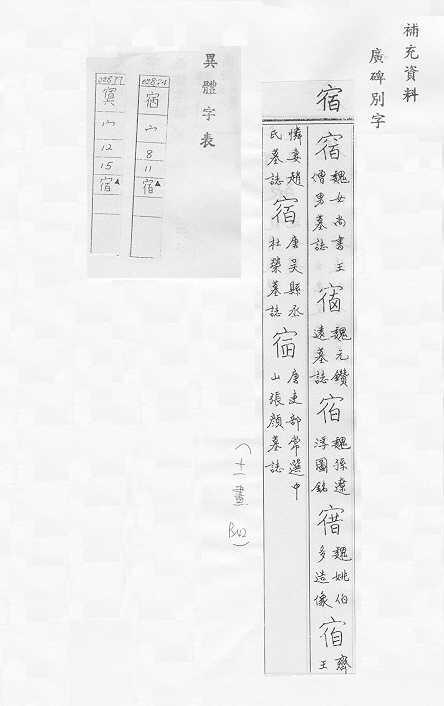 補充資料
廣碑別字
宿
宿 魏女尚書王
僧男墓誌
宿 魏元鑽
遠墓誌
宿 魏孫遼
浮圖銘
宿 魏姚伯
多造像
宿 齊
王
憐妻趙
氏墓誌
宿 唐吳縣丞
杜榮墓誌
宿 唐吏部常選中
山張顏墓誌
(十一畫 B42)
異體字表
宿
宀
8
11
宿▲
宀
12
15
宿▲